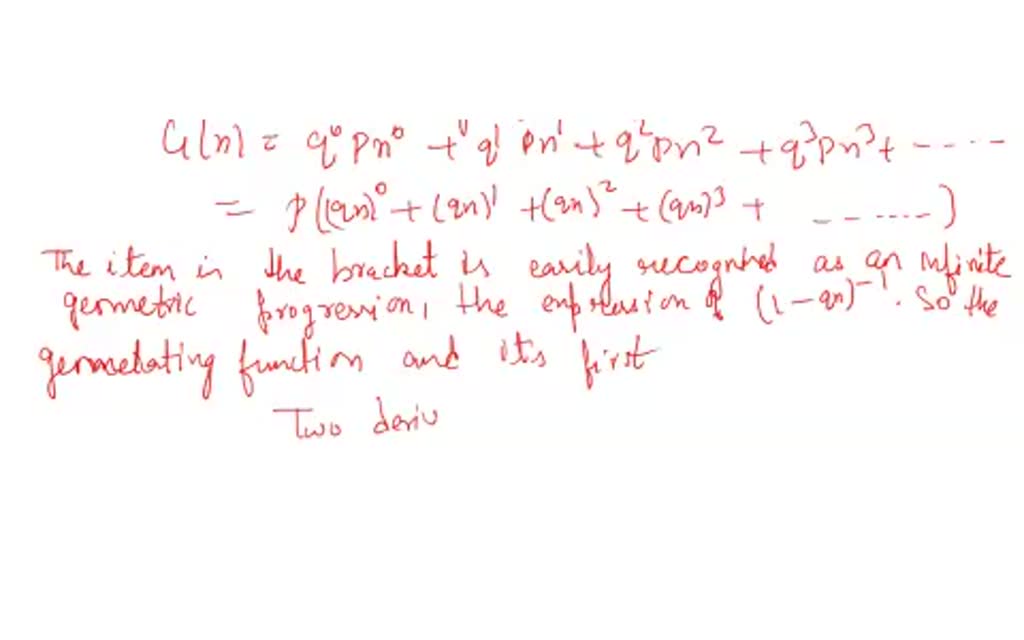 G(n) = q⁰pn⁰ + q¹ pn¹ + q²pn² + q³pn³ + -----
= p((qn)⁰ + (qn)¹ + (qn)² + (qn)³ + -------)
The item in the bracket is easily recognised as an infinite
geometric progression, the expression of (1 - qn)⁻¹. So the
genmetating function and it's first
Two deriv